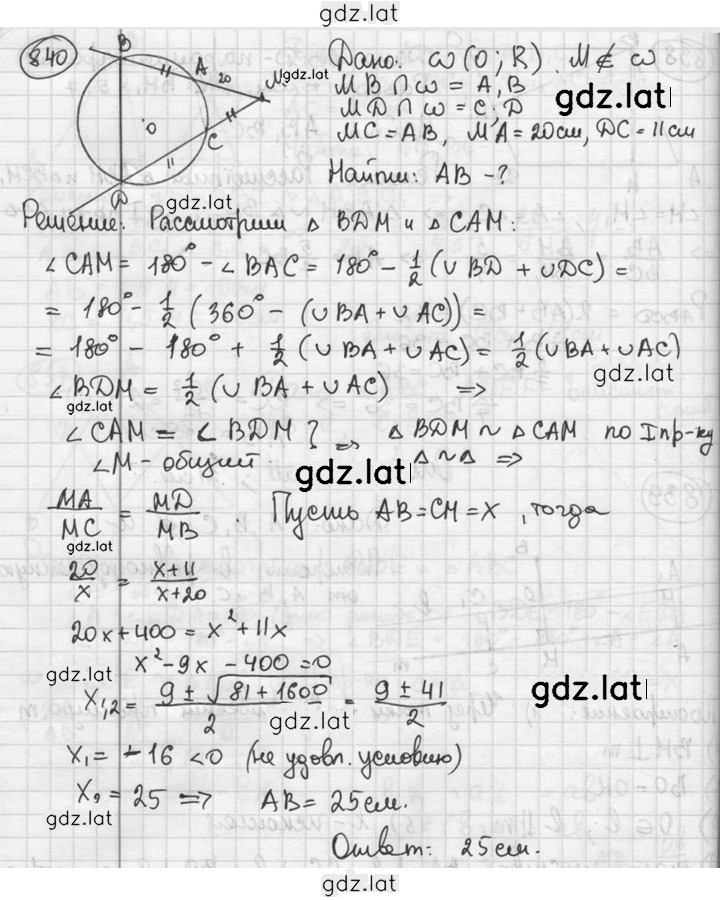 gdz.lat
840
B
A
20
M
gdz.lat
O
C
D
Дано: ω(O; R) M∉ω
MB∩ω = A, B
gdz.lat
MD∩ω = C; D
MC=AB, MA=20см, DC=11см
Найти: AB - ?
gdz.lat
Решение: Рассмотрим △ BDM и △ CAM:
∠CAM = 180° - ∠BAC = 180° - 1/2 (∪BD + ∪DC) =
= 180° - 1/2 (360° - (∪BA + ∪AC)) =
gdz.lat
= 180° - 180° + 1/2 (∪BA + ∪AC) = 1/2 (∪BA + ∪AC)
gdz.lat
∠BDM = 1/2 (∪BA + ∪AC) =>
gdz.lat
∠CAM = ∠BDM } => △ BDM ~ △ CAM по I пр-ку
∠M - общий △ ~ △ =>
gdz.lat
MA/MC = MD/MB . Пусть AB=CM=x, тогда
gdz.lat
20/x = (x+11)/(x+20)
20x+400 = x²+11x
x²-9x -400=0
gdz.lat
x₁,₂ = (9 ± √(81+1600))/2 = (9 ± 41)/2
gdz.lat
gdz.lat
x₁ = -16 <0 (не удовл. условию)
x₂ = 25 => AB = 25см.
gdz.lat
Ответ: 25см.
gdz.lat